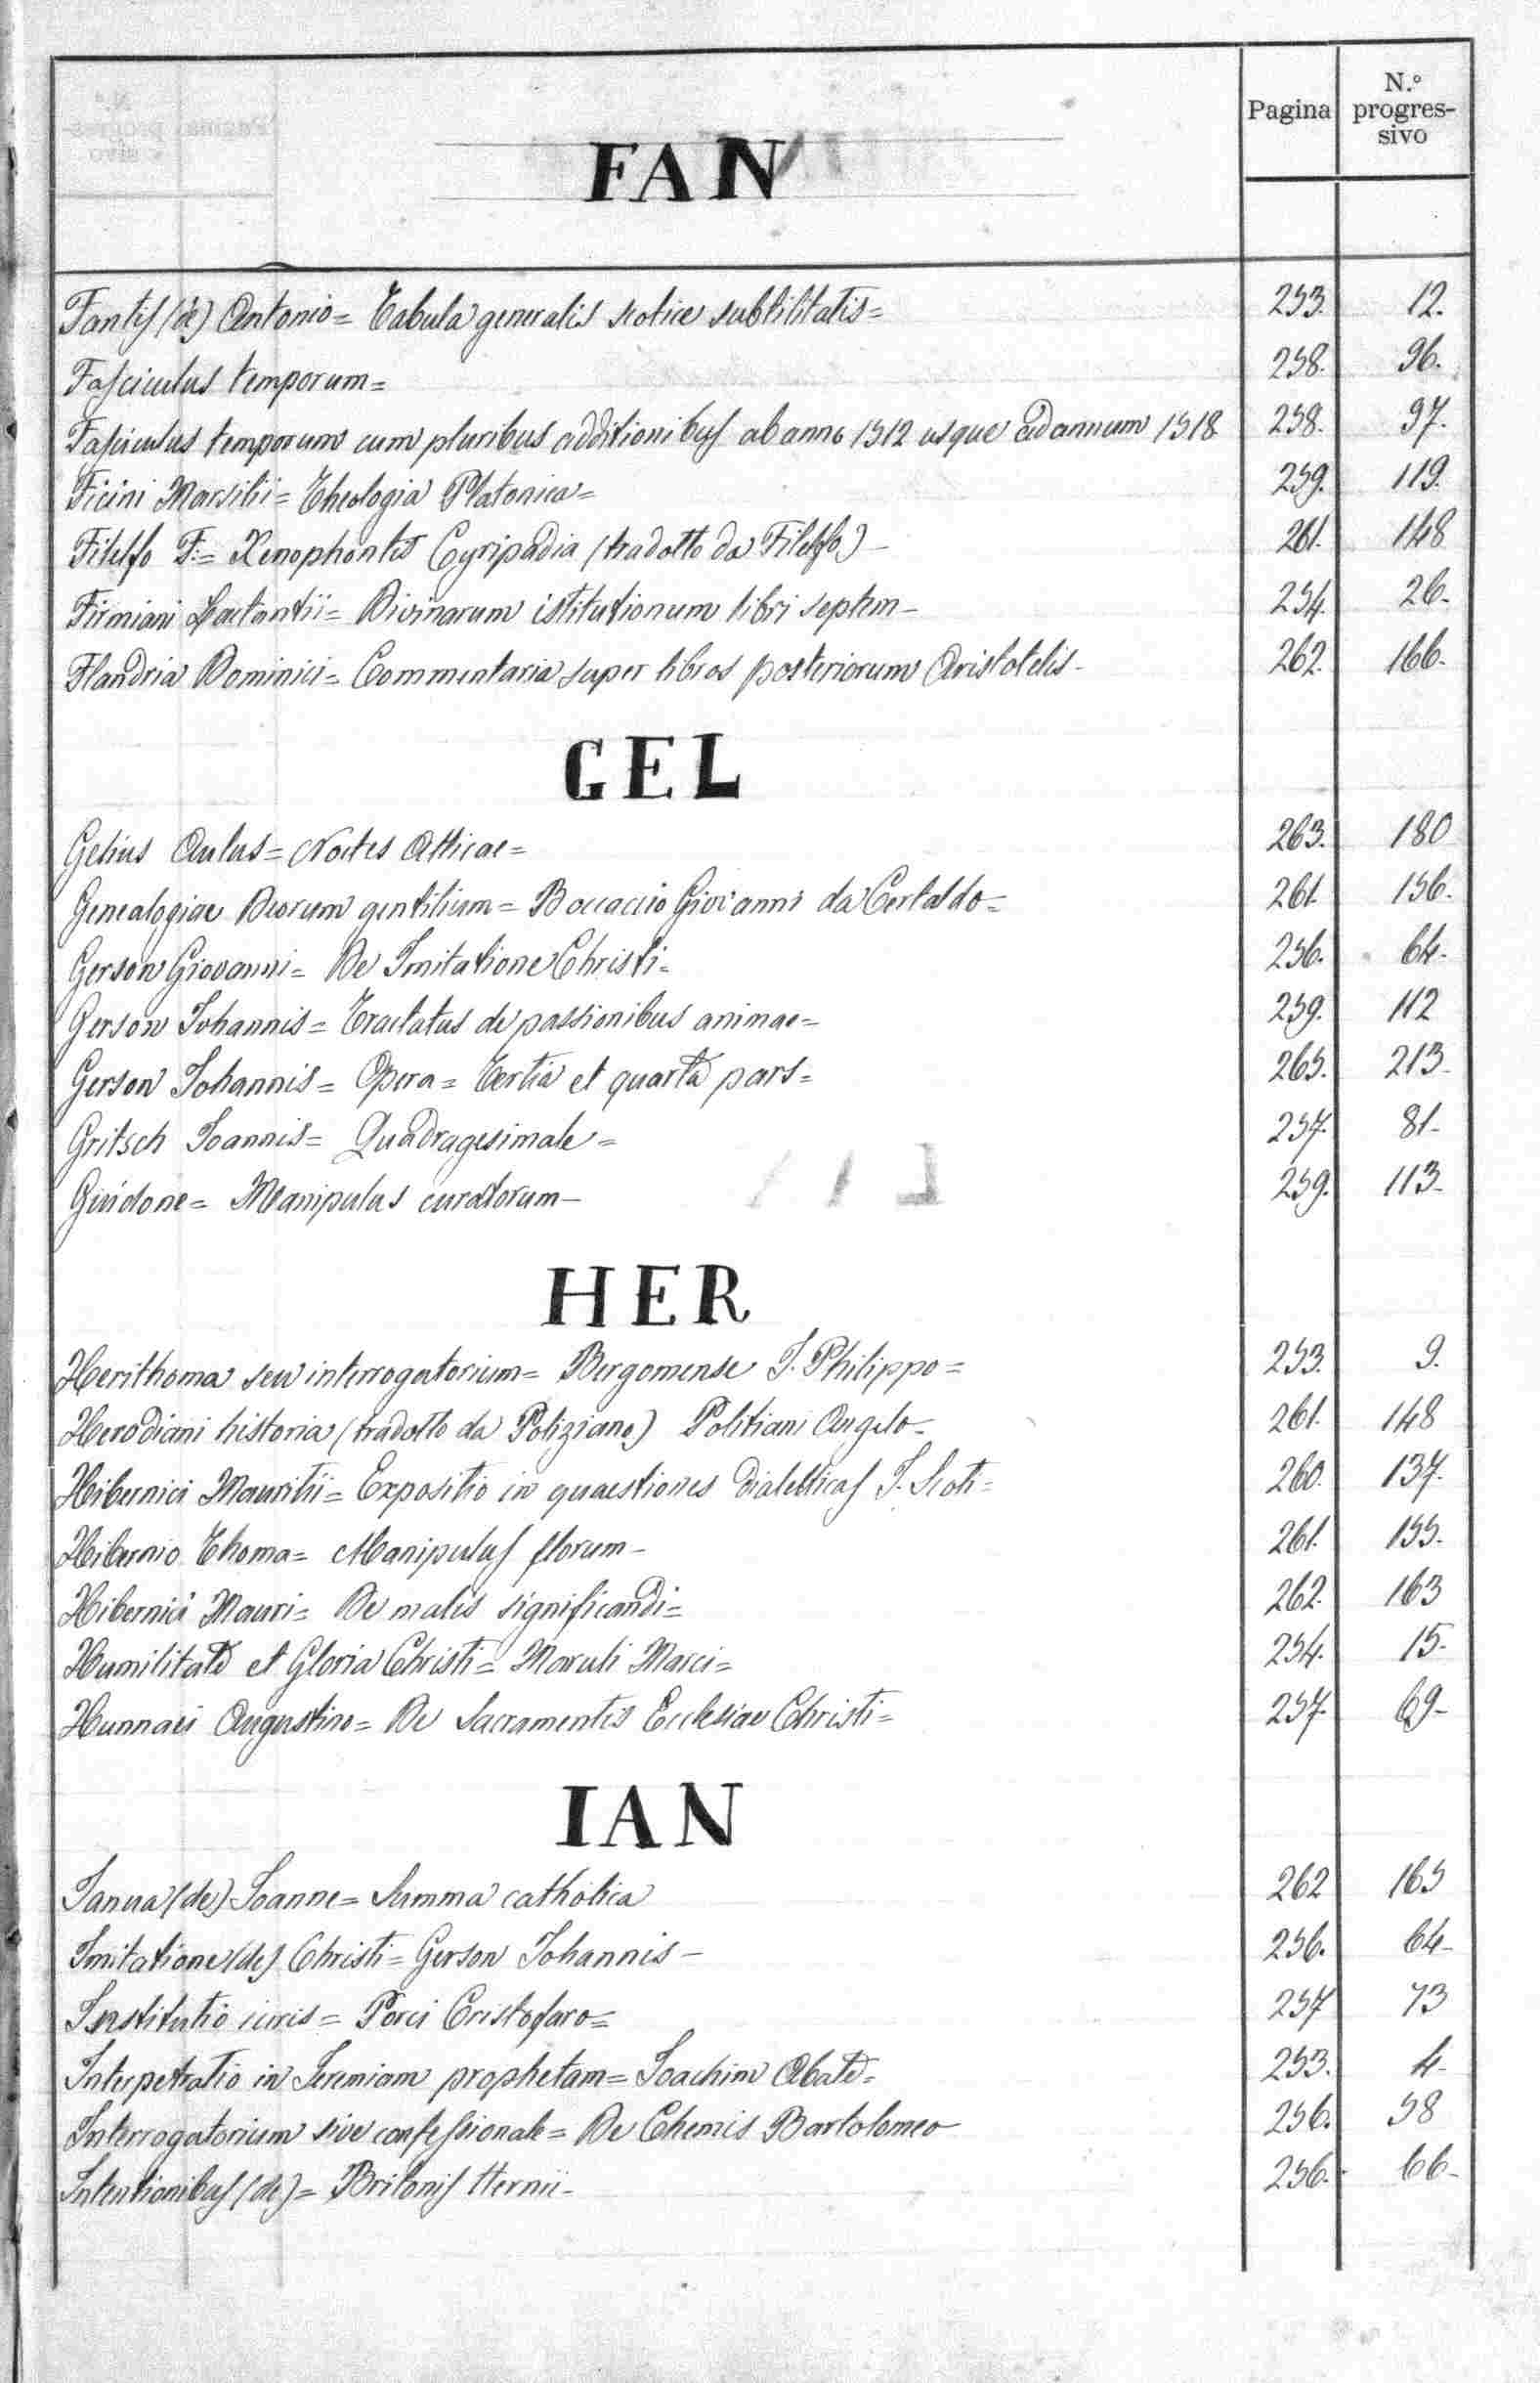 Pagina N.° progressivo
FAN
Fantis (de) Antonio = Tabula generalis scotice subtilitatis = 253. 12.
Fasciculus temporum = 258. 96.
Fasciculus temporum cum pluribus additionibus ab anno 1512 usque ad annum 1518 258. 97.
Ficini Marsilii = Theologia Platonica = 259. 119.
Filelfo F: = Xenophontis Cyripadia (tradotto da Filelfo) - 261. 148
Firmiani Lactantii = Divinarum istitutionum libri septem - 254. 26.
Flandria Dominici = Commentaria super libros posteriorum Aristotelis - 262. 166.
GEL
Gelius Aulus = Noctes Atticae = 263. 180
Genealogiae Deorum gentilium = Boccaccio Giovanni da Certaldo = 261. 156.
Gerson Giovanni = De Imitatione Christi = 256. 64.
Gerson Iohannis = Tractatus de passionibus animae = 259. 112
Gerson Iohannis = Opera = Tertia et quarta pars = 265. 213-
Gritsch Ioannis = Quadragesimale = 257. 81-
Guidone = Manipulus curatorum - 259. 113-
HER
Herithoma seu interrogatorium = Bergomense I. Philippo = 253. 9.
Herodiani historia (tradotto da Poliziano) Politiani Angelo - 261. 148
Hibernici Mauritii = Expositio in quaestiones dialetticas I. Scoti = 260. 137.
Hibernio Thoma = Manipulus florum - 261. 155.
Hibernici Mauri = De malis significandi = 262. 163
Humilitate et Gloria Christi = Maruli Marci = 254. 15.
Hunnaei Augustino = De Sacramentis Ecclesiae Christi = 257. 69-
IAN
Ianua (de) Ioanne = Summa catholica 262 165
Imitatione (de) Christi = Gerson Iohannis - 256. 64-
Institutio iuris = Porci Cristofaro = 257 73
Interpetratio in Ieremiam prophetam = Ioachim Abate = 253. 4-
Interrogatorium sive confessionale = De Chemis Bartolomeo 256. 58
Intentionibus (de) = Britonis Hernii - 256. 66-